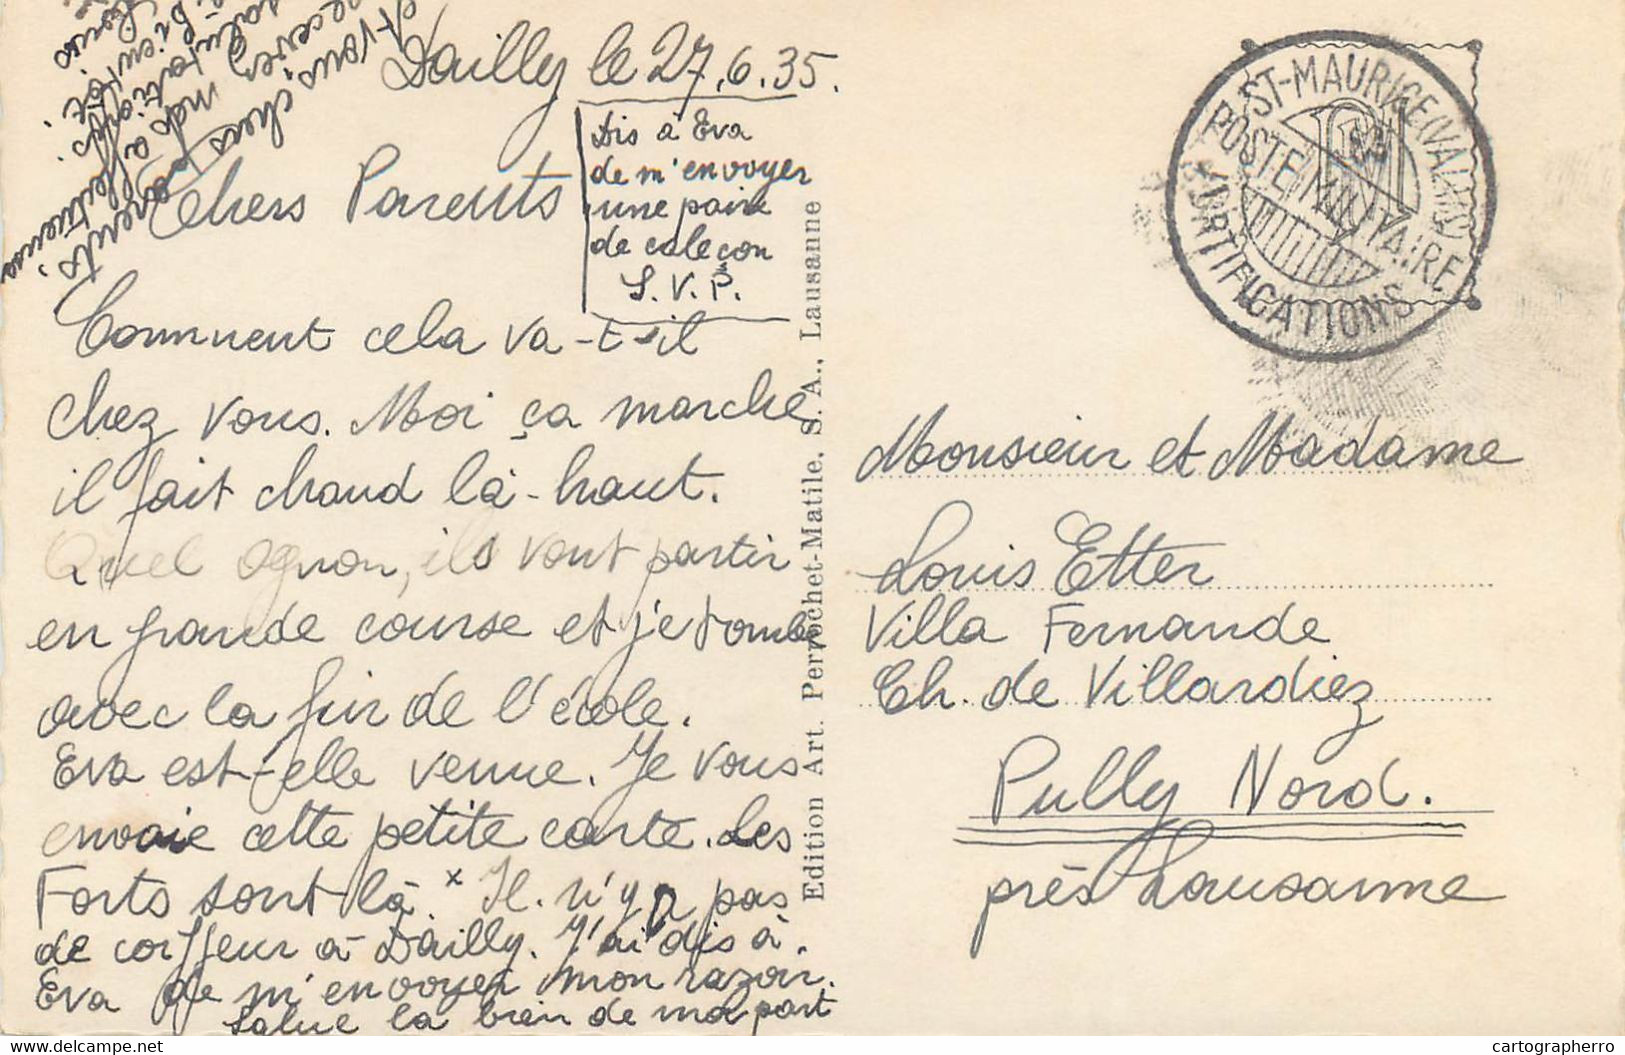 Dailly le 27.6.35.
Dis à Eva
de m'envoyer
une paire
de caleçon
S.V.P.
Chers Parents
Comment cela va-t-il
chez vous. Moi ça marche
il fait chaud là-haut.
Quel ognon, ils vont partir
en grande course et je tombe
avec la fin de l'école.
Eva est-elle venue. Je vous
envoie cette petite carte. Les
Forts sont là. x Il n'y a pas
de coiffeur à Dailly. J'ai dis à
Eva de m'envoyer mon razoir.
Salue la bien de ma part
et vous chers parents,
recevez mes affectueuses
salutations.
à bientôt.
Edition Art. Perrochet-Matile, S. A., Lausanne
ST-MAURICE (VALAIS)
POSTE MILITAIRE
FORTIFICATIONS
Monsieur et Madame
Louis Etter
Villa Fernande
Ch. de Villardiez
Pully Nord.
près Lausanne
www.delcampe.net
cartographerro